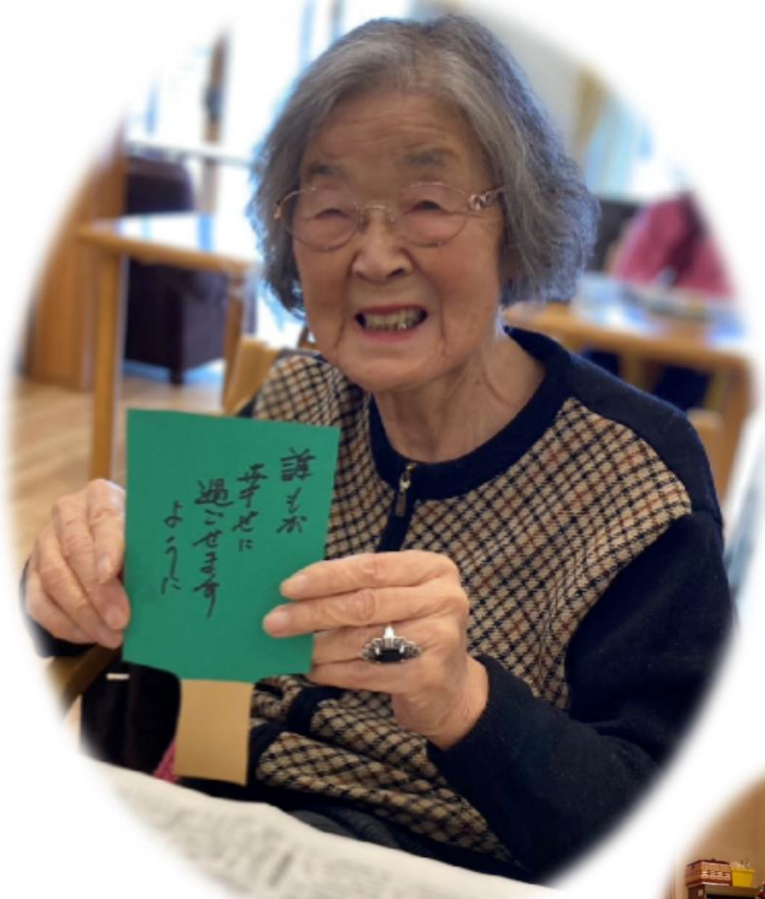 誰もが
幸せに
過ごせます
ように